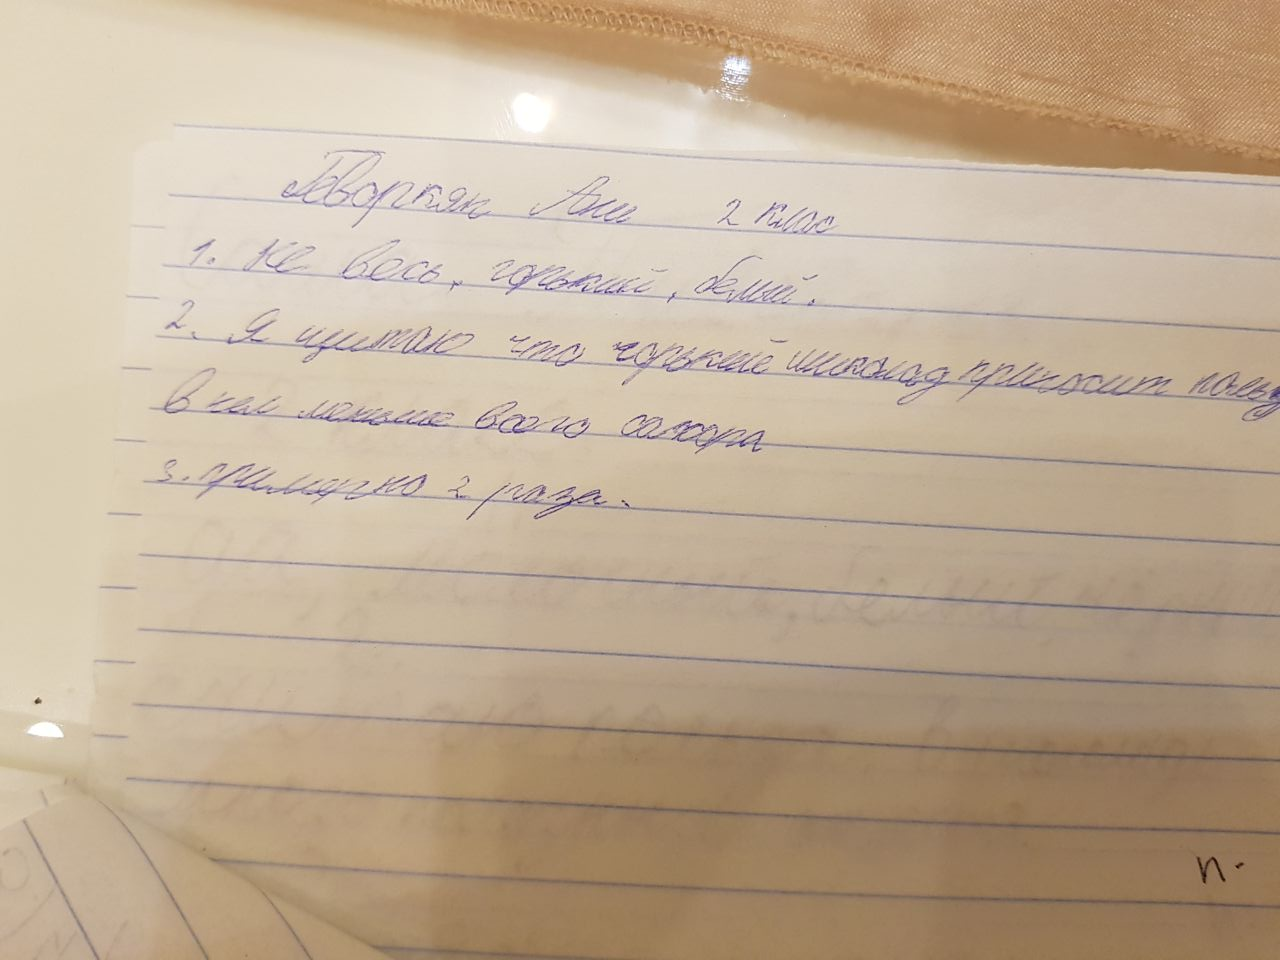 Геворкян Ани 2 клас
1. Не весь, горький, белый.
2. Я щитаю что горький шиколад приносит пользу
в нем меньше всего сахора
3. примерно 2 раза.
п.